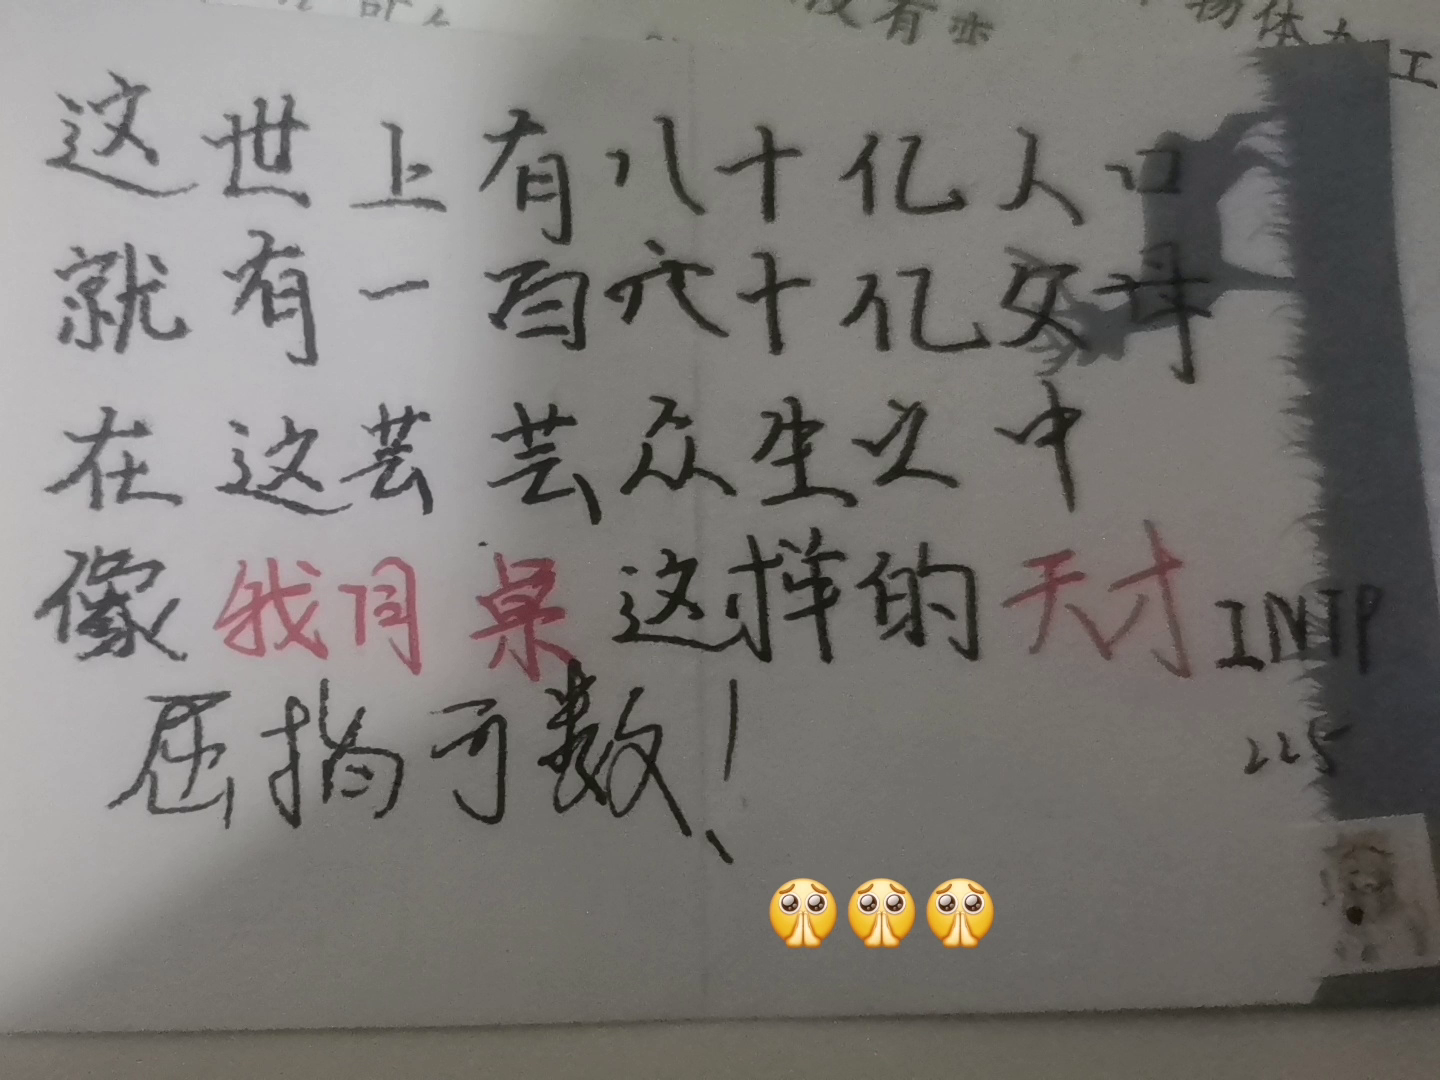 没有
物体 工
这世上有八十亿人口
就有一百六十亿父母
在这芸芸众生之中
像我同桌这样的天才 INTP
屈指可数！
225